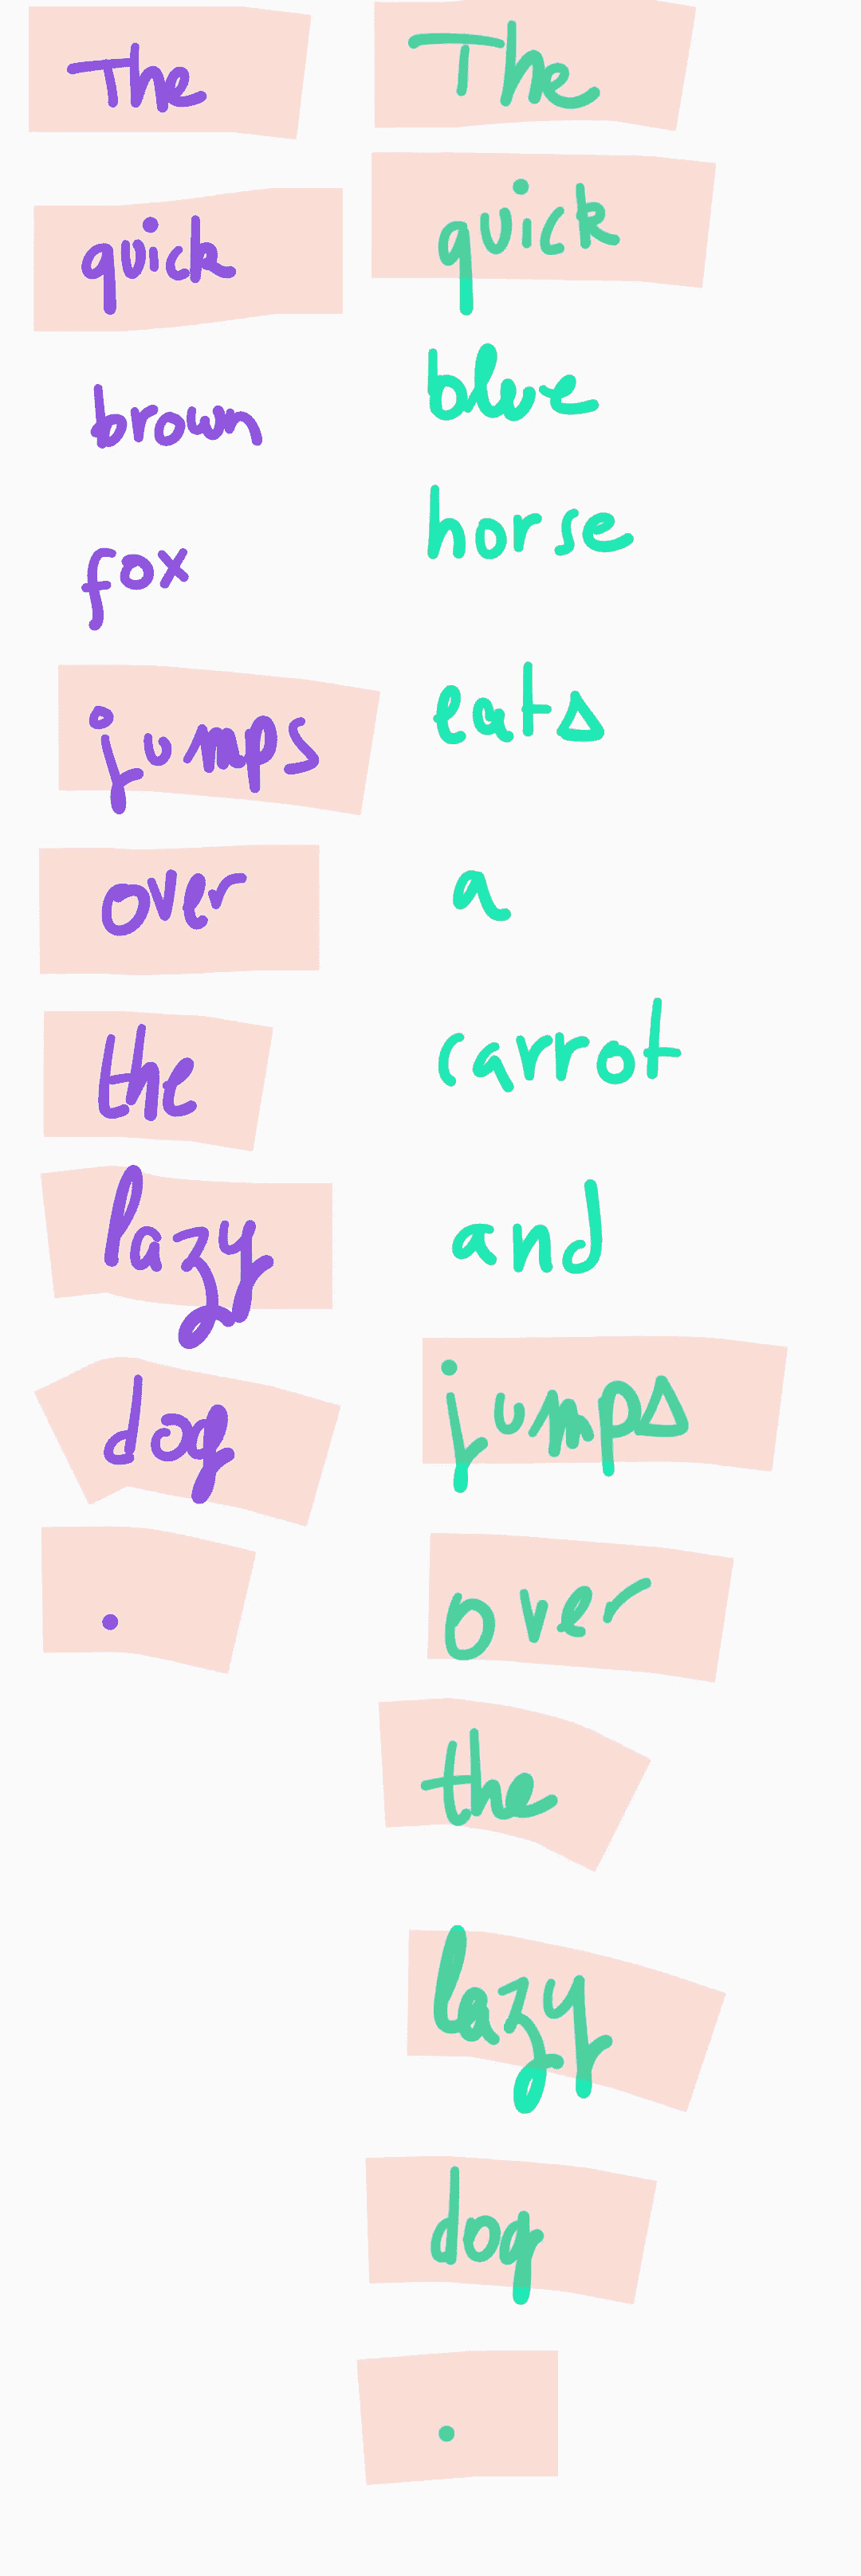 The
quick
brown
fox
jumps
over
the
lazy
dog
.
The
quick
blue
horse
eats
a
carrot
and
jumps
over
the
lazy
dog
.